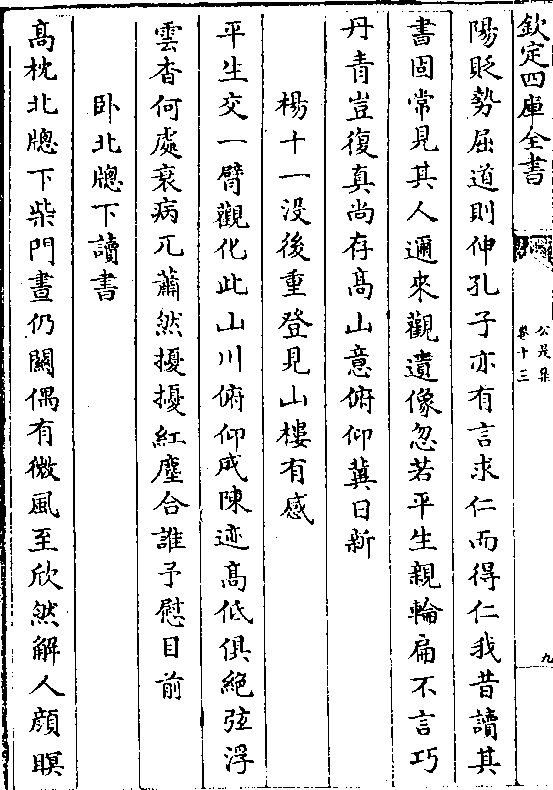 欽定四庫全書
公是集
卷十三
九
陽貶勢屈道則伸孔子亦有言求仁而得仁我昔讀其
書固常見其人邇來觀遺像忽若平生親輪扁不言巧
丹青豈復真尚存髙山意俯仰冀日新
楊十一没後重登見山樓有感
平生交一臂觀化此山川俯仰成陳迹髙低俱絶弦浮
雲杳何處衰病兀蕭然擾擾紅塵合誰予慰目前
卧北牕下讀書
髙枕北牕下柴門晝仍闗偶有微風至欣然解人顔瞑